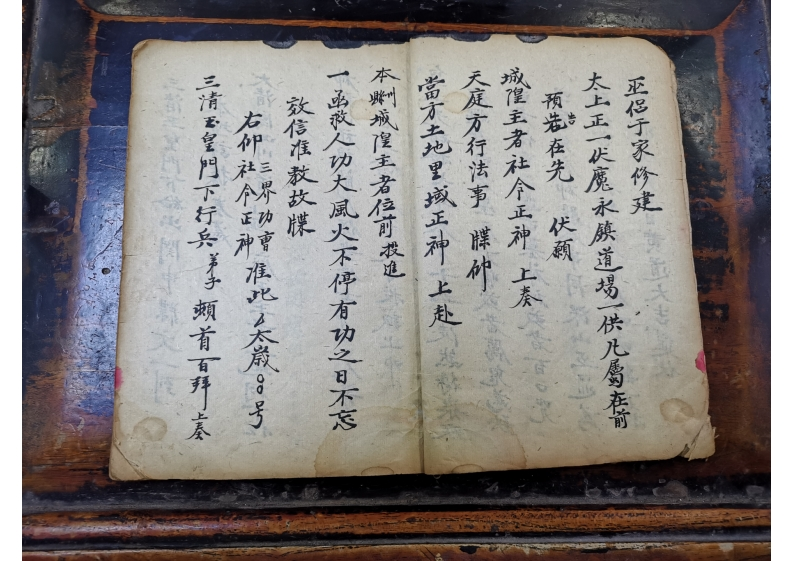 巫侣于家修建
太上正一伏魔永鎮道場一供凡屬在前
預告在先 伏願
城隍主者社令正神 上奏
天庭方行法事 牒仰
當方土地里域正神 上赴
本州縣城隍主者位前投進
一函救人功大風火不停有功之日不忘
效信准教故牒
右仰社令正神三界功曹准此 太歲〇〇号
三清玉皇門下行兵弟子 頓首百拜上奏